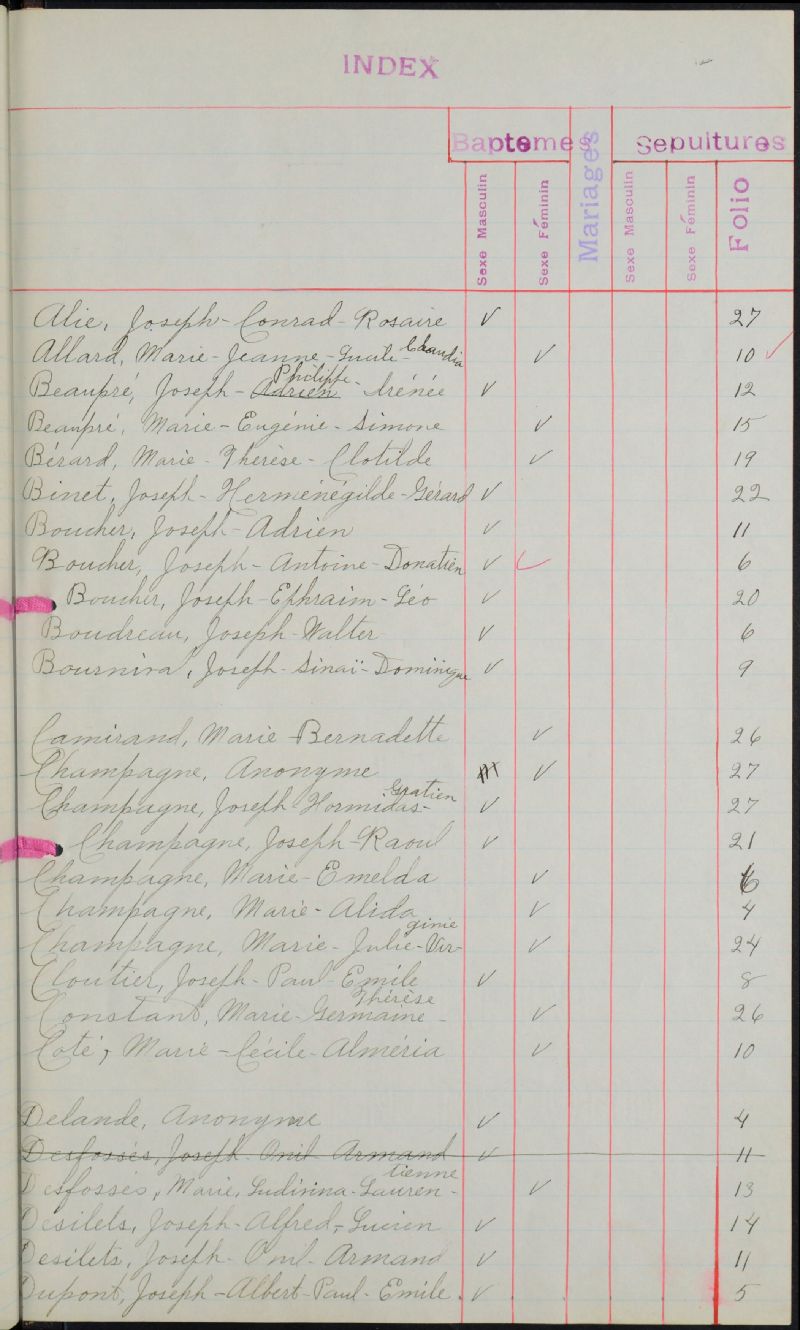 INDEX
Baptemes Mariages Sepultures
Sexe Masculin Sexe Féminin Sexe Masculin Sexe Féminin Folio
Alie, Joseph-Conrad-Rosaire V 27
Allard, Marie-Jeanne-Lucile-Claudia V 10 V
Philippe-
Beaupré, Joseph-Adrien-Irénée V 12
Beaupré, Marie-Eugénie-Simone V 15
Bérard, Marie-Thérèse-Clotilde V 19
Binet, Joseph-Herménégilde-Gérard V 22
Boucher, Joseph-Adrien V 11
Boucher, Joseph-Antoine-Donatien V V 6
Boucher, Joseph-Ephraim-Géo V 20
Boudreau, Joseph-Walter V 6
Joseph-Sinaï-Dominique V 9
Camirand, Marie-Bernadette V 26
Champagne, Anonyme V 27
Gratien
Champagne, Joseph-Hormidas- V 27
Champagne, Joseph-Raoul V 21
Champagne, Marie-Emelda V 6
Champagne, Marie-Alida V 4
ginie
Champagne, Marie-Julie-Vir- V 24
Cloutier, Joseph-Paul-Emile V 8
Thérèse
Constant, Marie-Germaine- V 26
Coté, Marie-Cécile-Alméria V 10
Delande, Anonyme V 4
Desfossés, Joseph Onil Armand V 11
tienne
Desfossés, Marie, Ludivina-Lauren- V 13
Désilets, Joseph-Alfred-Lucien V 14
Desilets, Joseph-Onil-Armand V 11
Dupont, Joseph-Albert-Paul-Emile. V 5